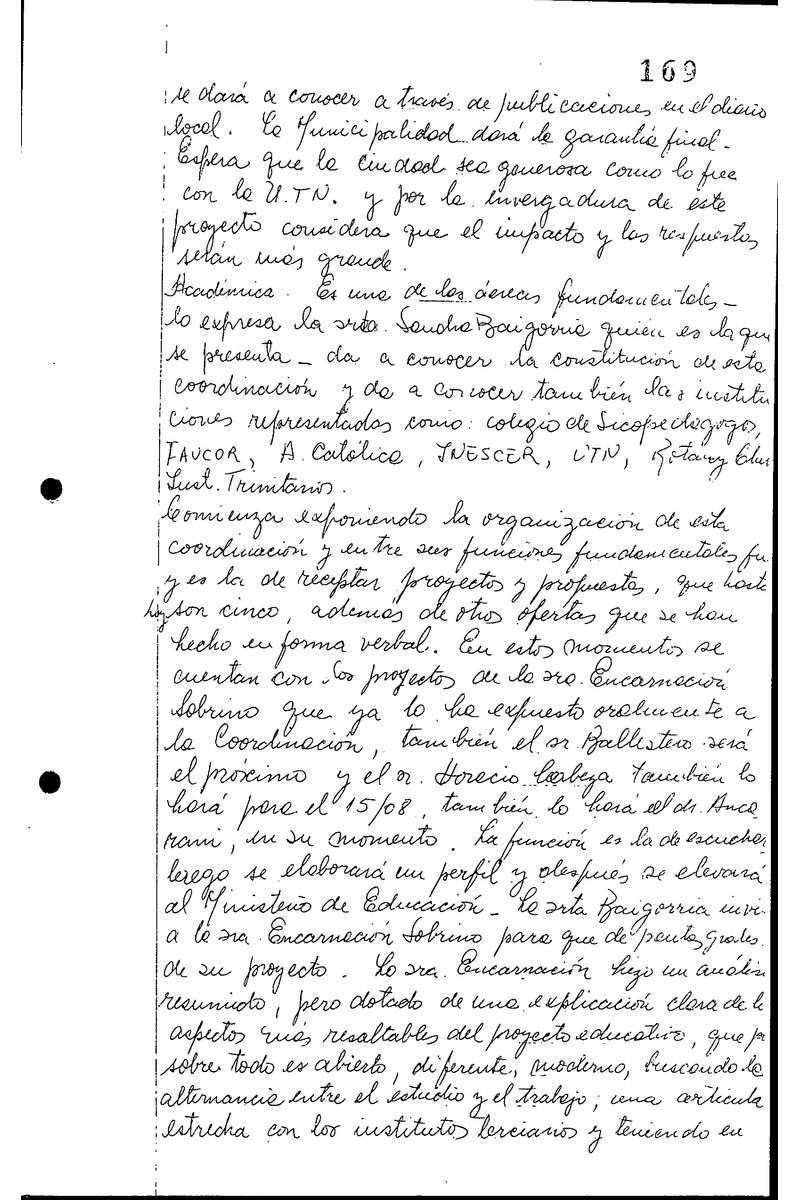 169
se dará a conocer a través de publicaciones en el diario
local. La Municipalidad dará la garantía final.
Espera que la ciudad sea generosa como lo fue
con la U.TN. y por la envergadura de este
proyecto considera que el impacto y las respuestas
serán más grande.
Académica. Es una de las áereas fundamentales -
lo expresa la srta. Sandra Baigorria quien es la que
se presenta - da a conocer la constitución de esta
coordinación y da a conocer también las institu
ciones representadas como: colegio de Sicopedagogos,
FAVCOR, A. Católica, INESCER, UTN, Rotary Club
Inst. Trinitarios.
Comienza exponiendo la organización de esta
coordinación y entre sus funciones fundamentales fu
y es la de receptar proyectos y propuestas, que hasta
hoy son cinco, además de otros ofertas que se han
hecho en forma verbal. En estos momentos se
cuentan con los proyectos de la sra. Encarnación
Sobrino que ya lo ha expuesto oralmente a
la Coordinación, también el sr. Ballistero será
el próximo y el sr. Horacio Cabeza también lo
hará para el 15/08, también lo hará el dr. Anca
rani, en su momento. La función es la de escuchar
luego se elaborará un perfil y después se elevará
al Ministerio de Educación - La srta Baigorria invi
a la sra. Encarnación Sobrino para que dé pautas grales.
de su proyecto. La sra. Encarnación hizo un análisi
resumido, pero dotado de una explicación clara de l
aspectos más resaltables del proyecto educativo, que p
sobre todo es abierto, diferente, moderno, buscando la
alternancia entre el estudio y el trabajo; una articula
estrecha con los institutos terciarios y teniendo en